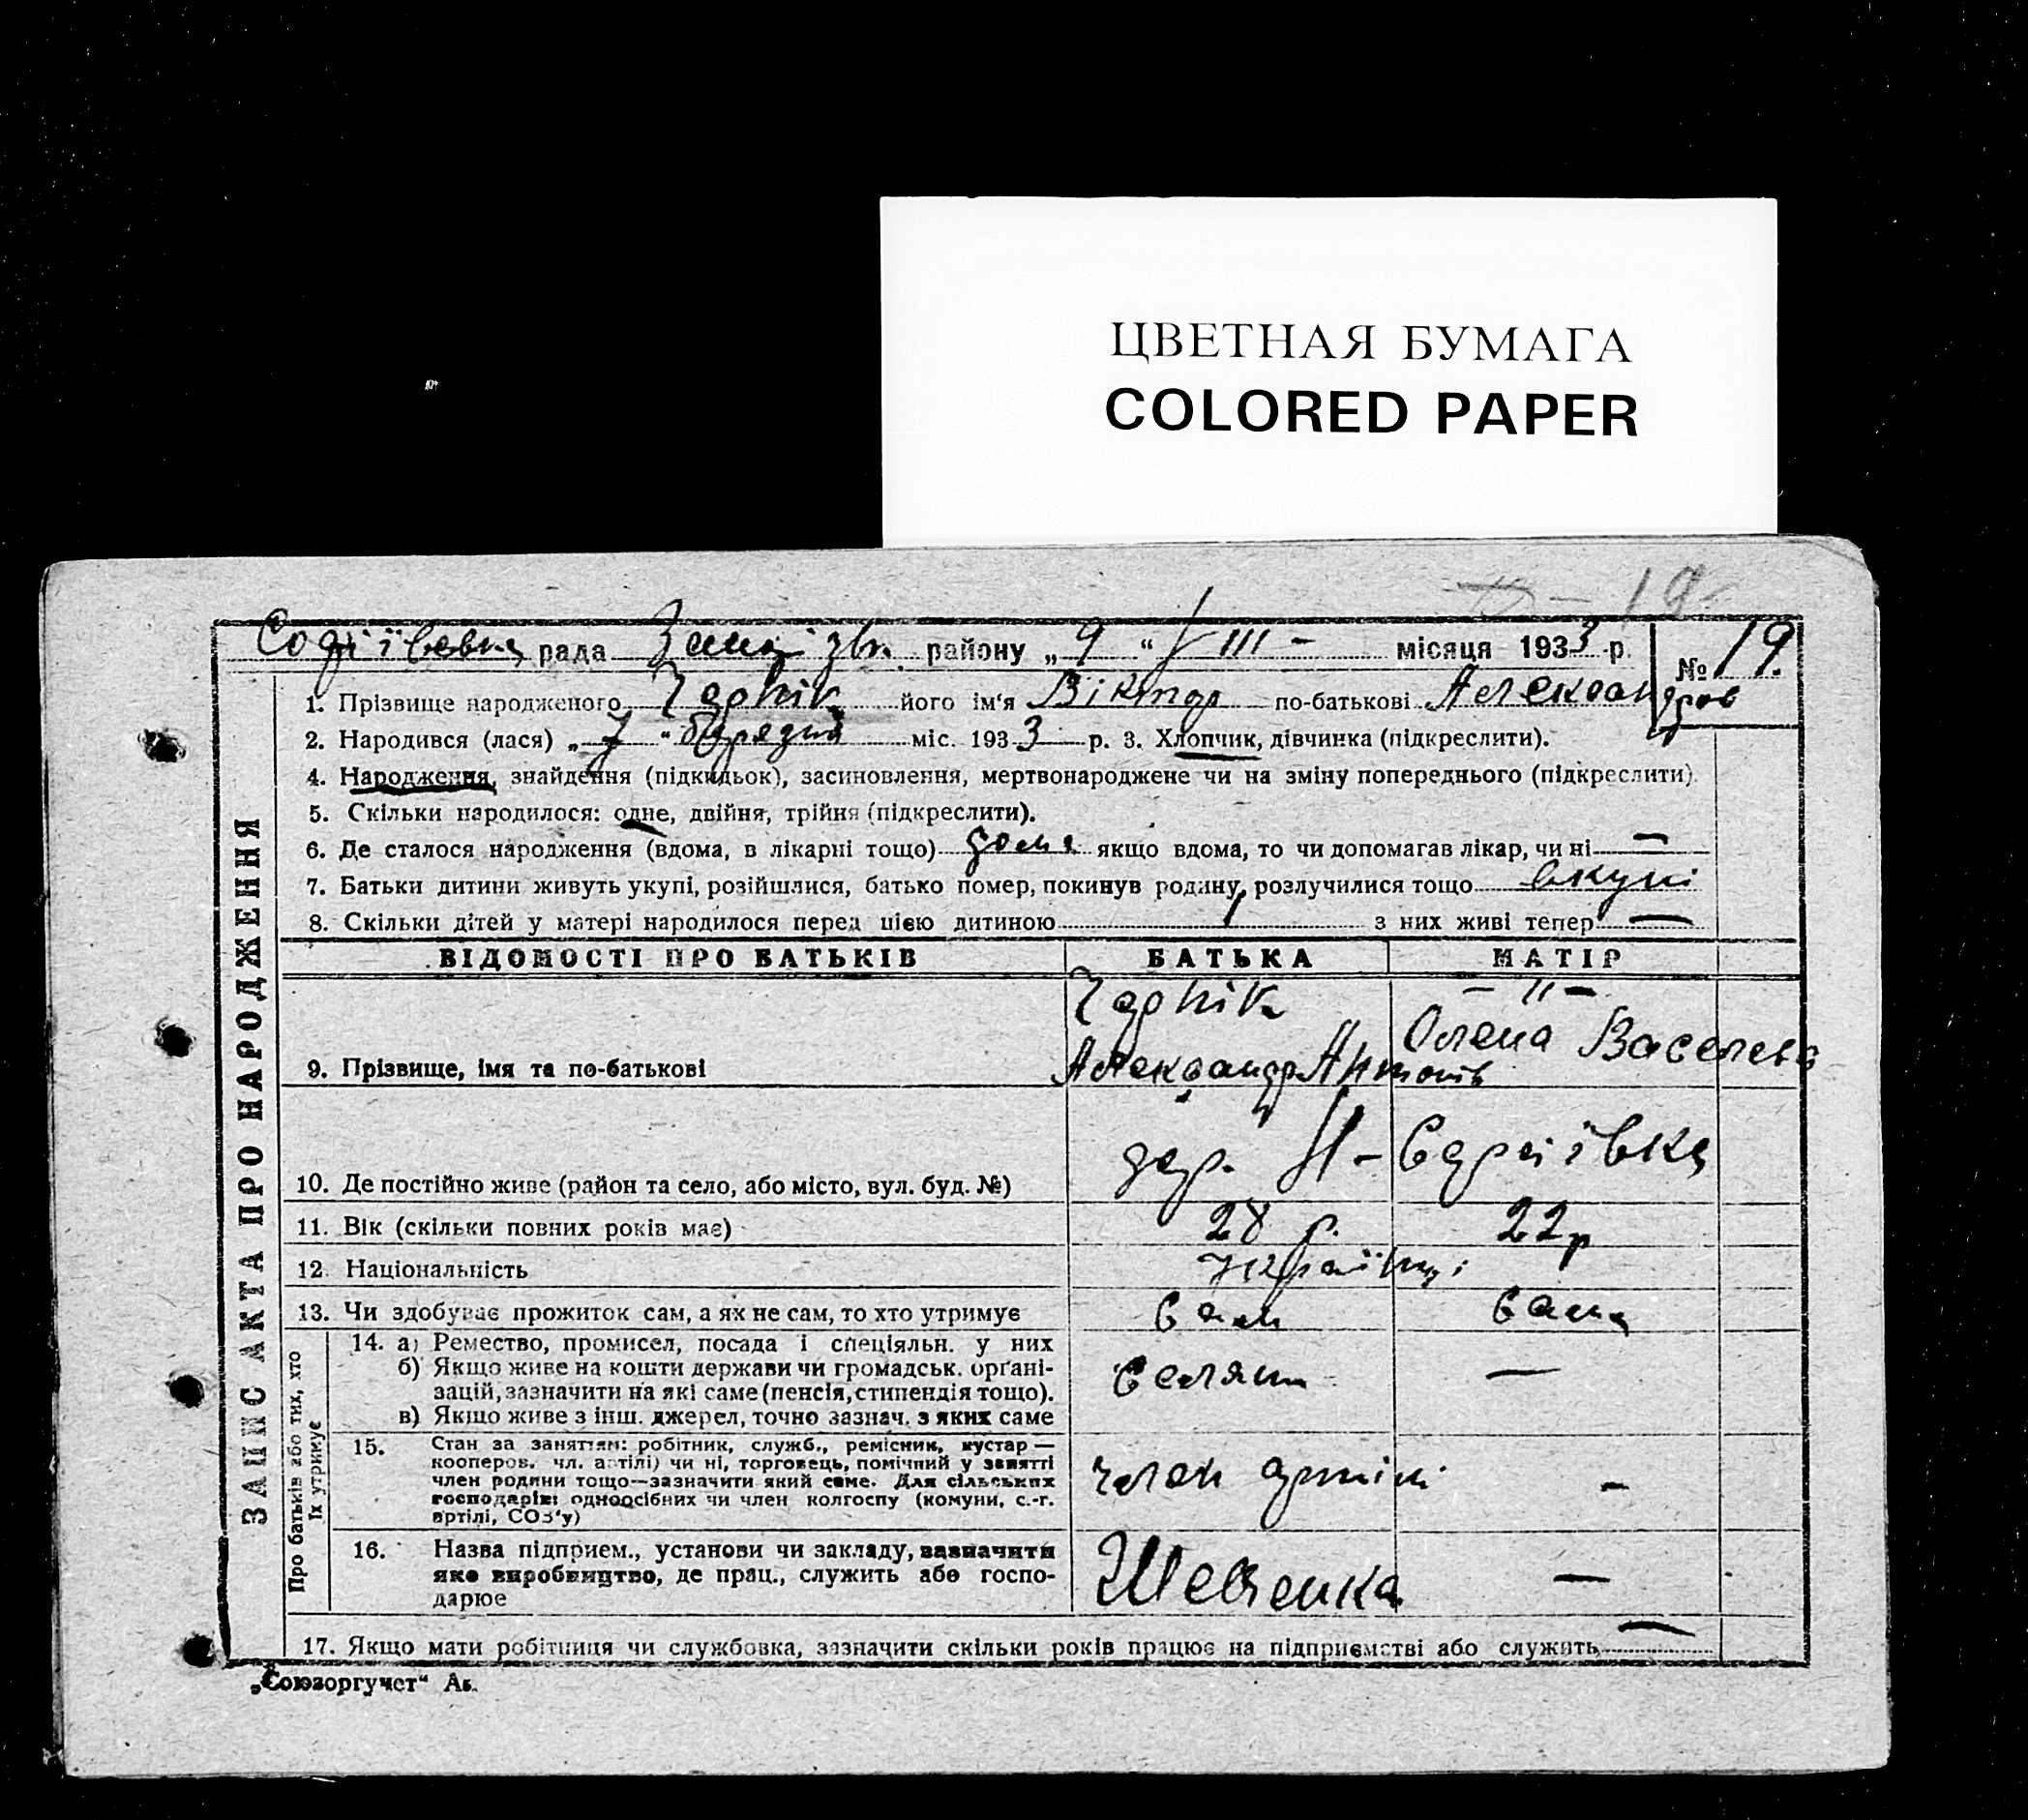 ЦВЕТНАЯ БУМАГА
COLORED PAPER
19
Софіївська рада районy „9“ VIII – місяця 1933 р. № 19.
1. Прізвище народженого його ім'я Віктор по-батькові Александров
2. Народився (лася) „7“ міс. 1933 р. 3. Хлопчик, дівчинка (підкреслити).
4. Народження, знайдення (підкидьок), засиновлення, мертвонароджене чи на зміну попереднього (підкреслити).
5. Скільки народилося: одне, двійня, трійня (підкреслити).
6. Де сталося народження (вдома, в лікарні тощо) дома якщо вдома, то чи допомагав лікар, чи ні —
7. Батьки дитини живуть укупі, розійшлися, батько помер, покинув родину, розлучилися тощо вкупі
8. Скільки дітей у матері народилося перед цією дитиною 1 з них живі тепер —
ЗАПИС АКТА ПРО НАРОДЖЕННЯ
ВІДОМОСТІ ПРО БАТЬКІВ БАТЬКА МАТІР
9. Прізвище, імя та по-батькові Александр Антонів – " – Олена Васелева
10. Де постійно живе (район та село, або місто, вул. буд. №)
11. Вік (скільки повних років має) 28 р. 22 р
12. Національність Українці
13. Чи здобуває прожиток сам, а як не сам, то хто утримує сам сама
Про батьків або тих, хто їх утримує
14. а) Ремество, промисел, посада і спеціяльн. у них
б) Якщо живе на кошти держави чи громадськ. орґані-
зацій, зазначити на які саме (пенсія, стипендія тощо). селян —
в) Якщо живе з інш. джерел, точно зазнач. з яких саме
15. Стан за заняттям: робітник, служб., ремісник, кустар —
кооперов. чл. артілі) чи ні, торговець, помічний у занятті
член родини тощо—зазначити який саме. Для сільських член артілі –
господарів: одноосібних чи член колгоспу (комуни, с.-г.
артілі, СОЗ'у)
16. Назва підприєм., установи чи закладу, зазначити
яке виробництво, де прац., служить або госпо- Шевченка —
дарює
17. Якщо мати робітниця чи службовка, зазначити скільки років працює на підприємстві або служить —
„Союзоргучет“